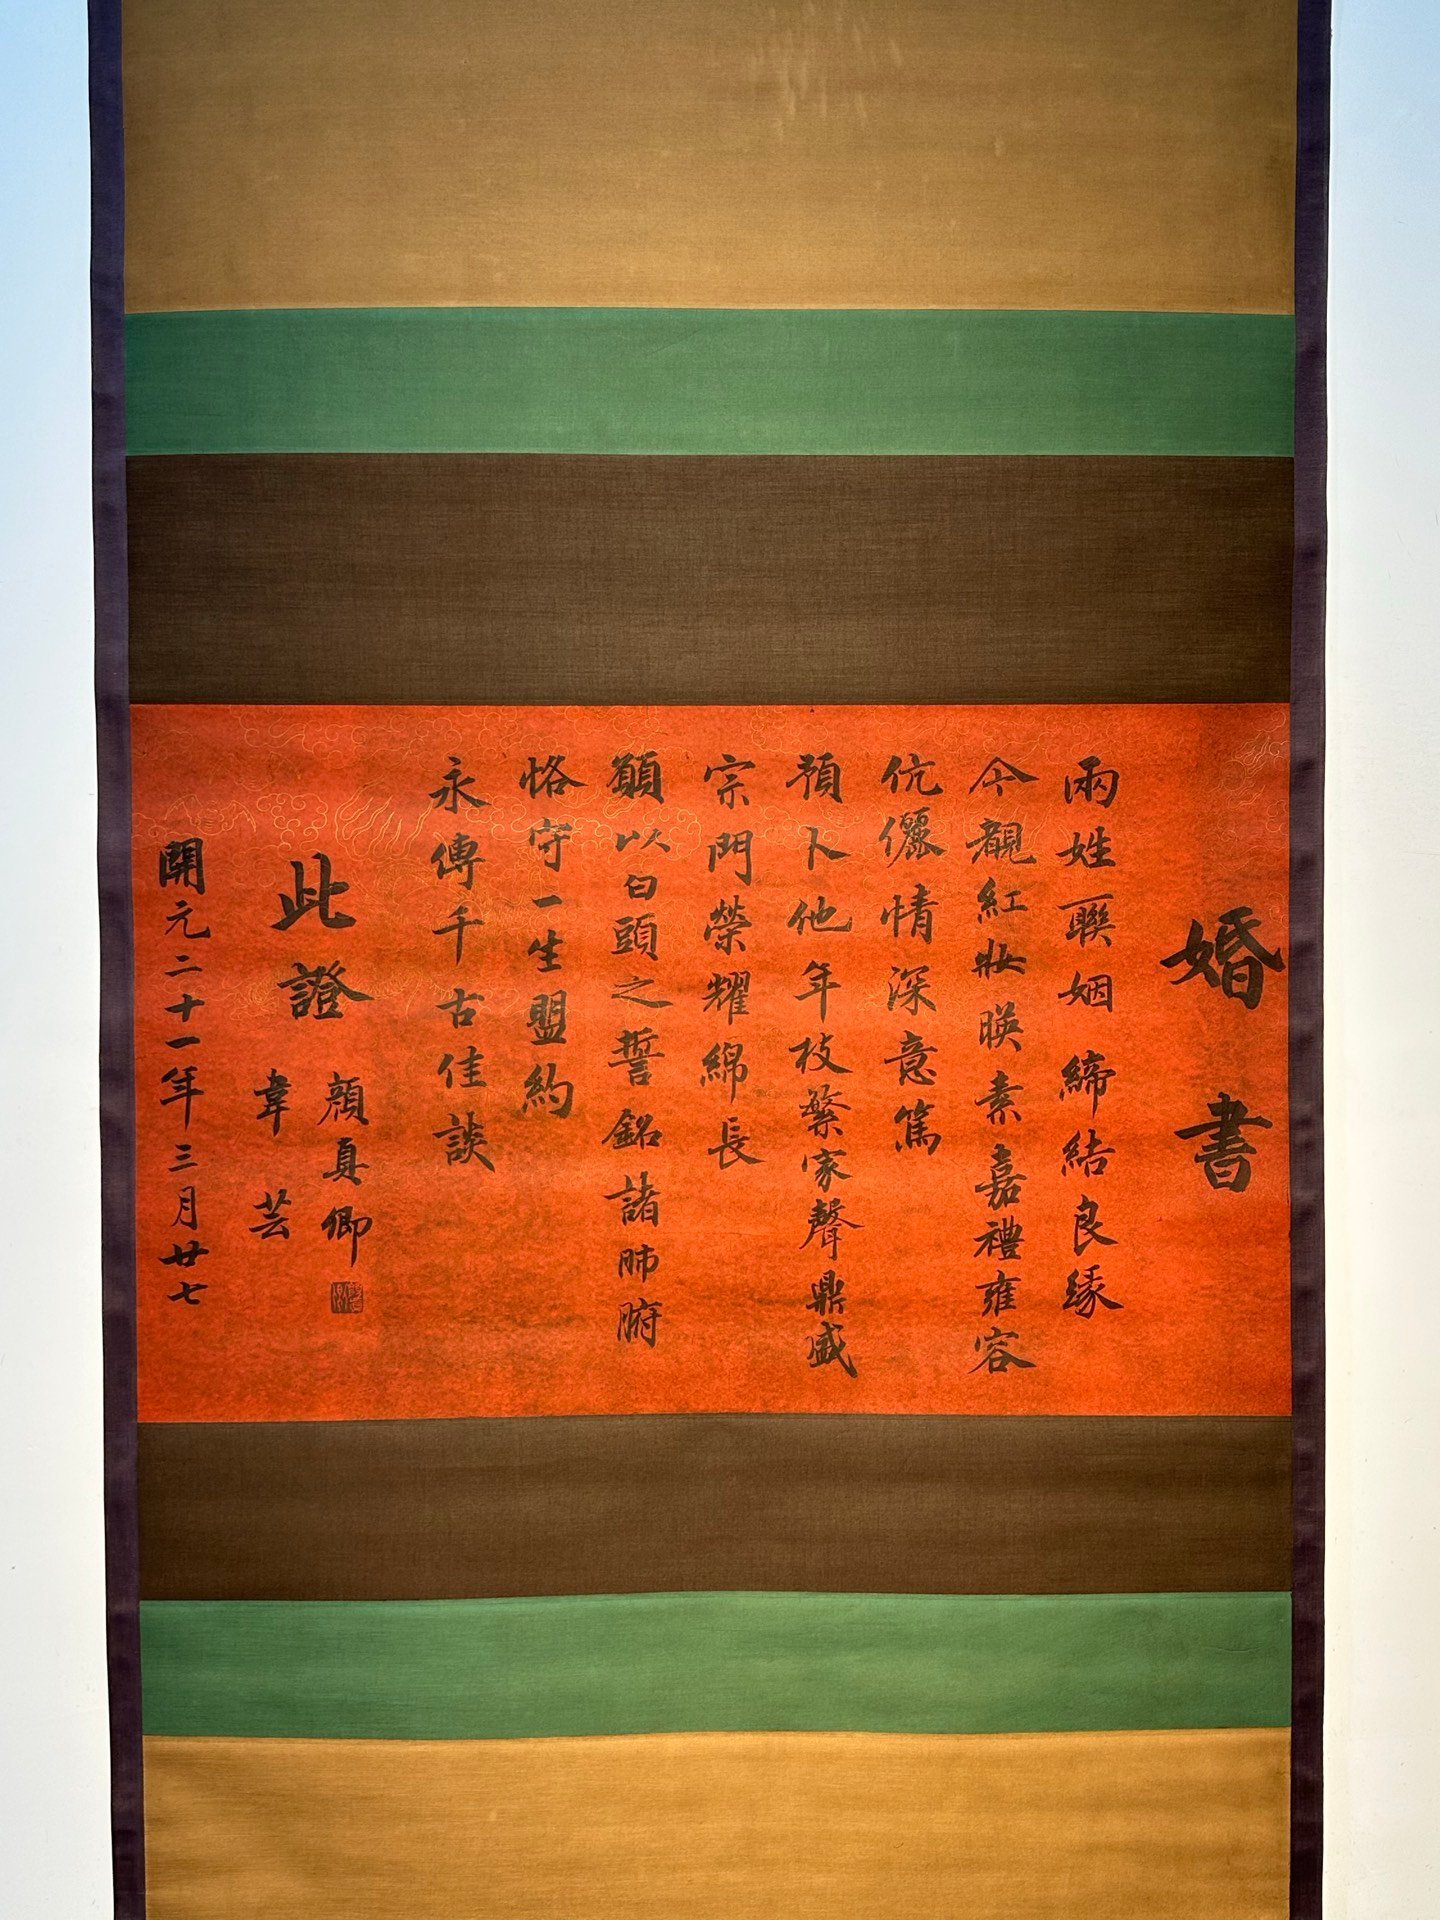 婚書
兩姓聯姻 締結良緣
今覩紅妝暎素嘉禮雍容
伉儷情深意篤
預卜他年枝繁家聲鼎盛
宗門榮耀綿長
願以白頭之誓銘諸肺腑
恪守一生盟約
永傳千古佳談
此證
顏真卿
韋芸
開元二十一年三月廿七